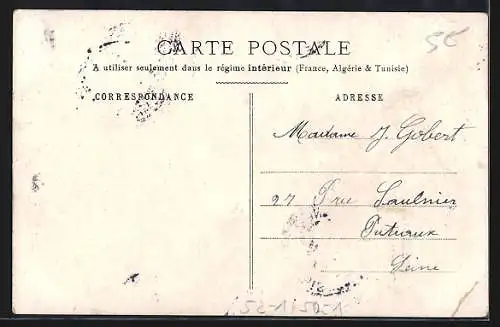 5E
CARTE POSTALE
A utiliser seulement dans le régime intérieur (France, Algérie & Tunisie)
CORRESPONDANCE
ADRESSE
Madame J. Gobert
27 Rue Saulnier
Puteaux
Seine